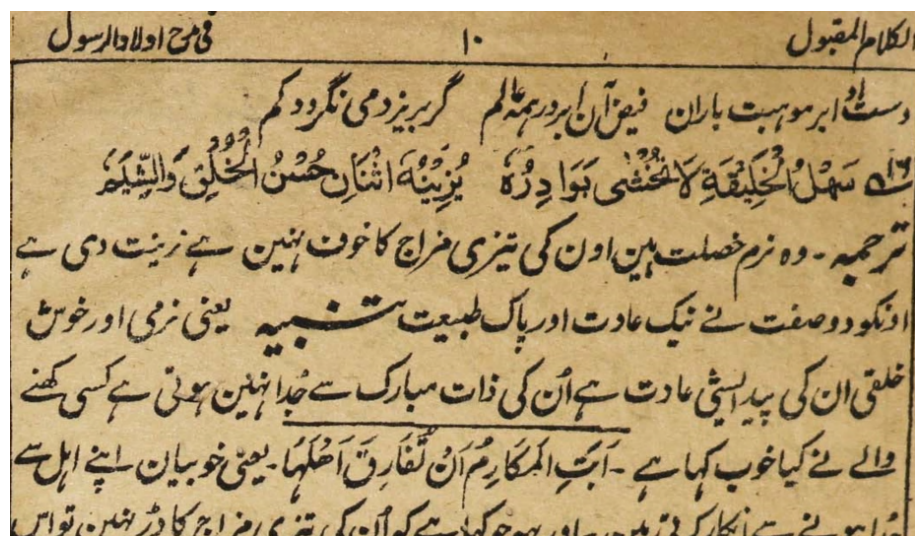 الکلام المقبول ۱۰ فی مدح اولاد الرسول
دست او ابر موہبت باران فیض آن ابر در ہمہ عالم گر بریزد می نگردد کم
۱۶ سَهْلُ الْخَلِيْقَةِ لَا تُخْشٰى بَوَادِرُهٗ يُزِيْنُهٗ اثْنَانِ حُسْنُ الْخُلُقِ وَالشِّيَمٗ
ترجمہ ۔ وہ نرم خصلت ہین اون کی تیزی مزاج کا خوف نہین ہے زینت دی ہے
اونکو دو صفت نے نیک عادت اور پاک طبیعت تنبیہ یعنی نرمی اور خوش
خلقی ان کی پیدایشی عادت ہے اُن کی ذات مبارک سے جُدا نہین ہوتی ہے کسی کہنے
والے نے کیا خوب کہا ہے ۔ اَبَتِ الْمَکَارِمُ اَنْ تُّفَارِقَ اَهْلَهَا ۔ یعنی خوبیان اپنے اہل سے
جُدا ہونے سے انکار کرتی ہین ۔ اور یہہ جو کہا ہے کہ اُن کی تیزی مزاج کا ڈر نہین تو اس